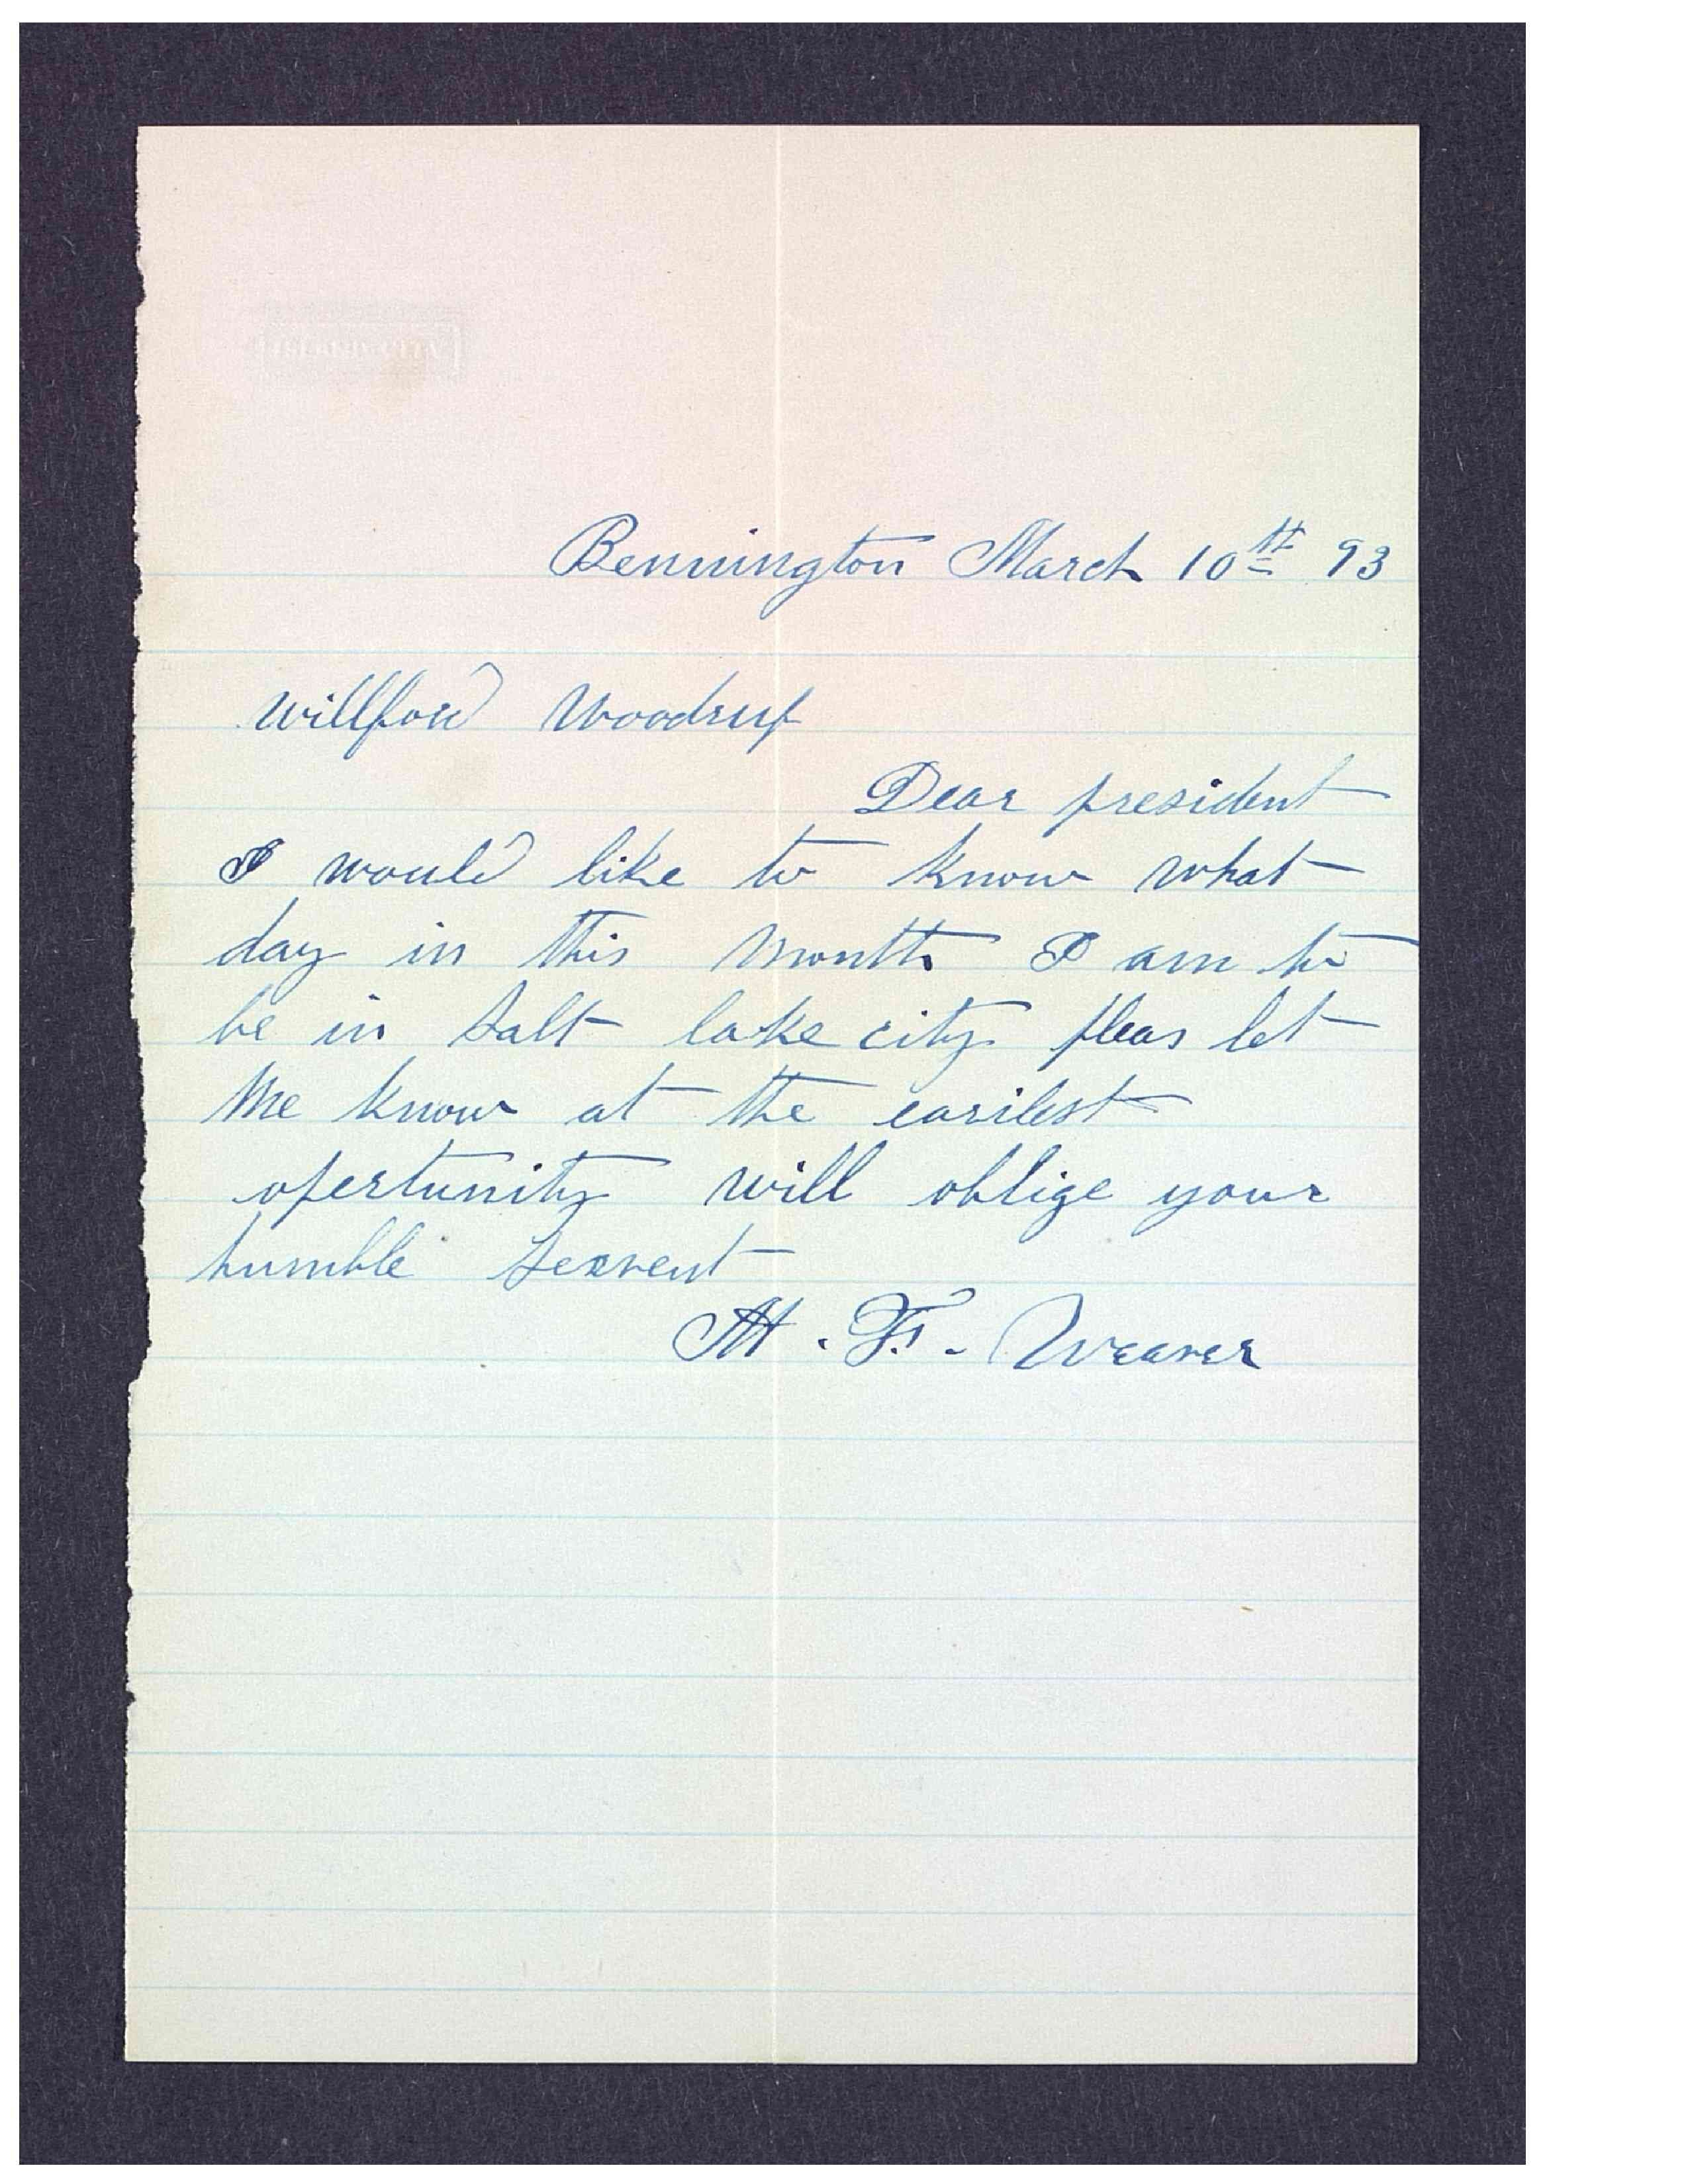 Bennington March 10th 93
Willford Woodruf
Dear president
I would like to know what
day in this month I am to
be in Salt lake city pleas let
me know at the earilest
opertunity will oblige your
humble servent
M. F. Weaver